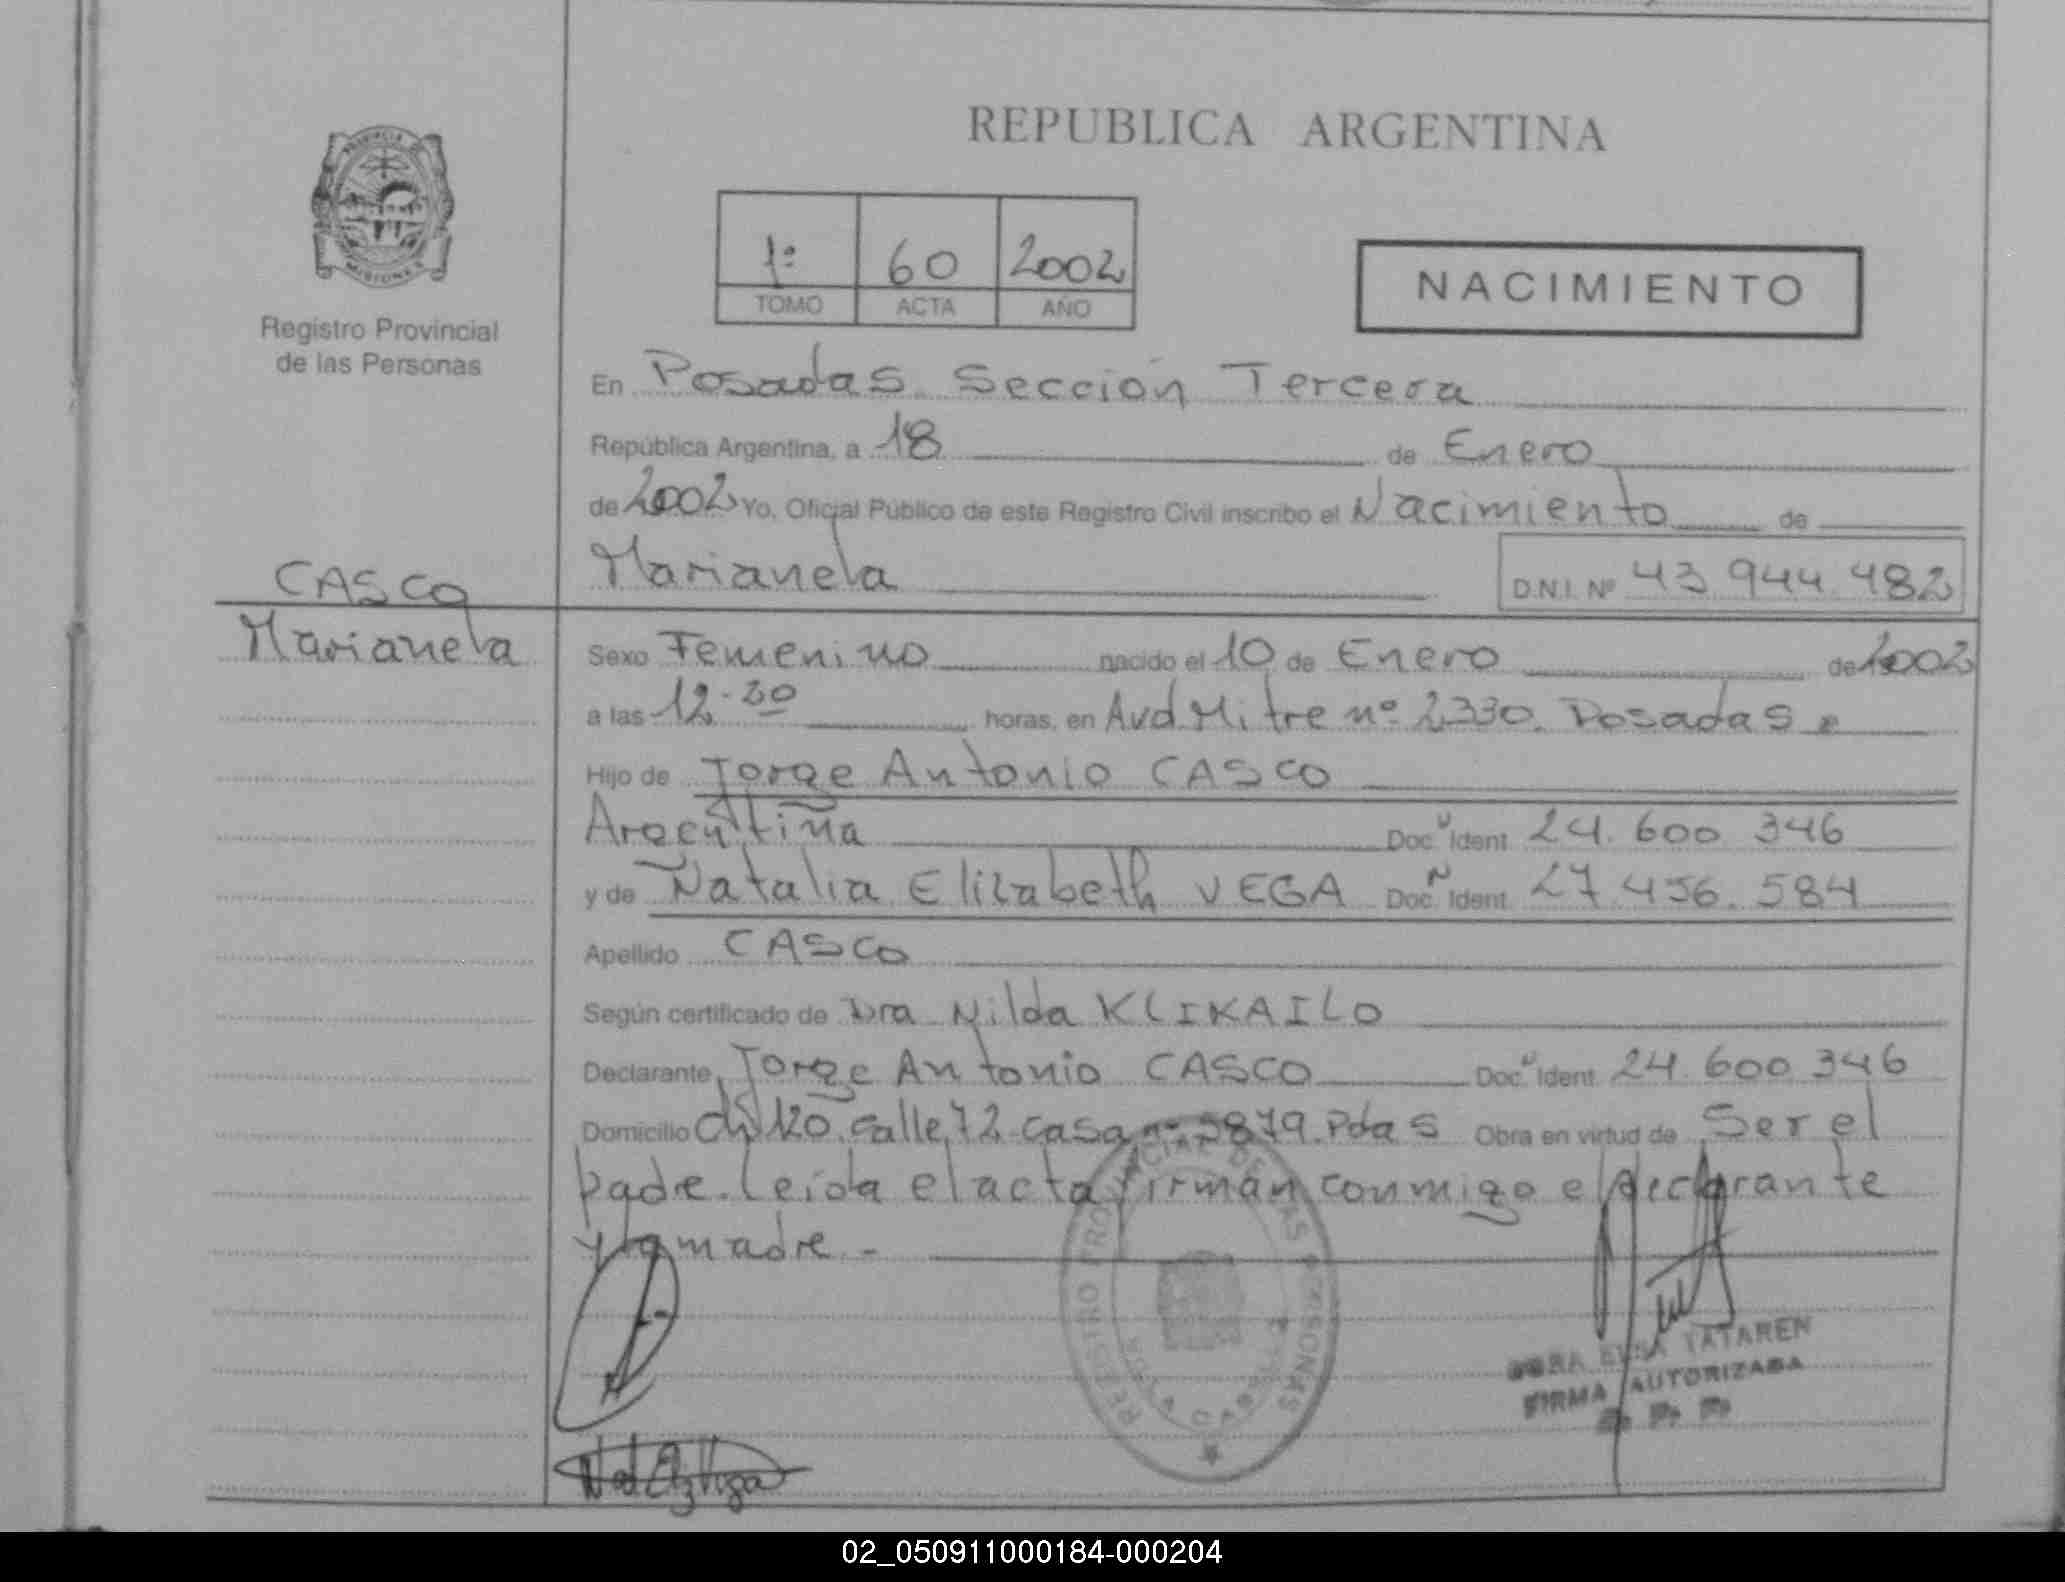 REPUBLICA ARGENTINA
PROVINCIA DE
MISIONES
Registro Provincial
de las Personas
1º 60 2002
TOMO ACTA AÑO
NACIMIENTO
En Posadas Sección Tercera
República Argentina, a 18 de Enero
de 2002 Yo, Oficial Público de este Registro Civil inscribo el Nacimiento de
CASCO
Marianela
Marianela D.N.I. Nº 43 944 482
Sexo Femenino nacido el 10 de Enero de 2002
a las 12-20 horas, en Avd Mitre nº 2330. Posadas
Hijo de Jorge Antonio CASCO
Argentina Doc. Ident. 24.600 346
y de Natalia Elizabeth VEGA Doc. Ident. 27.456.584
Apellido CASCO
Según certificado de Dra Nilda KLIKAILO
Declarante Jorge Antonio CASCO Doc. Ident. 24.600 346
Domicilio ch 120 calle 72 casa nº 3879. Pdas Obra en virtud de Ser el
padre. Leída el acta firman conmigo el declarante
y la madre.-
REGISTRO PROVINCIAL DE LAS PERSONAS
ELSA TATAREN
FIRMA AUTORIZADA
R. P. P.
Nat Eliz Vega
02_050911000184-000204